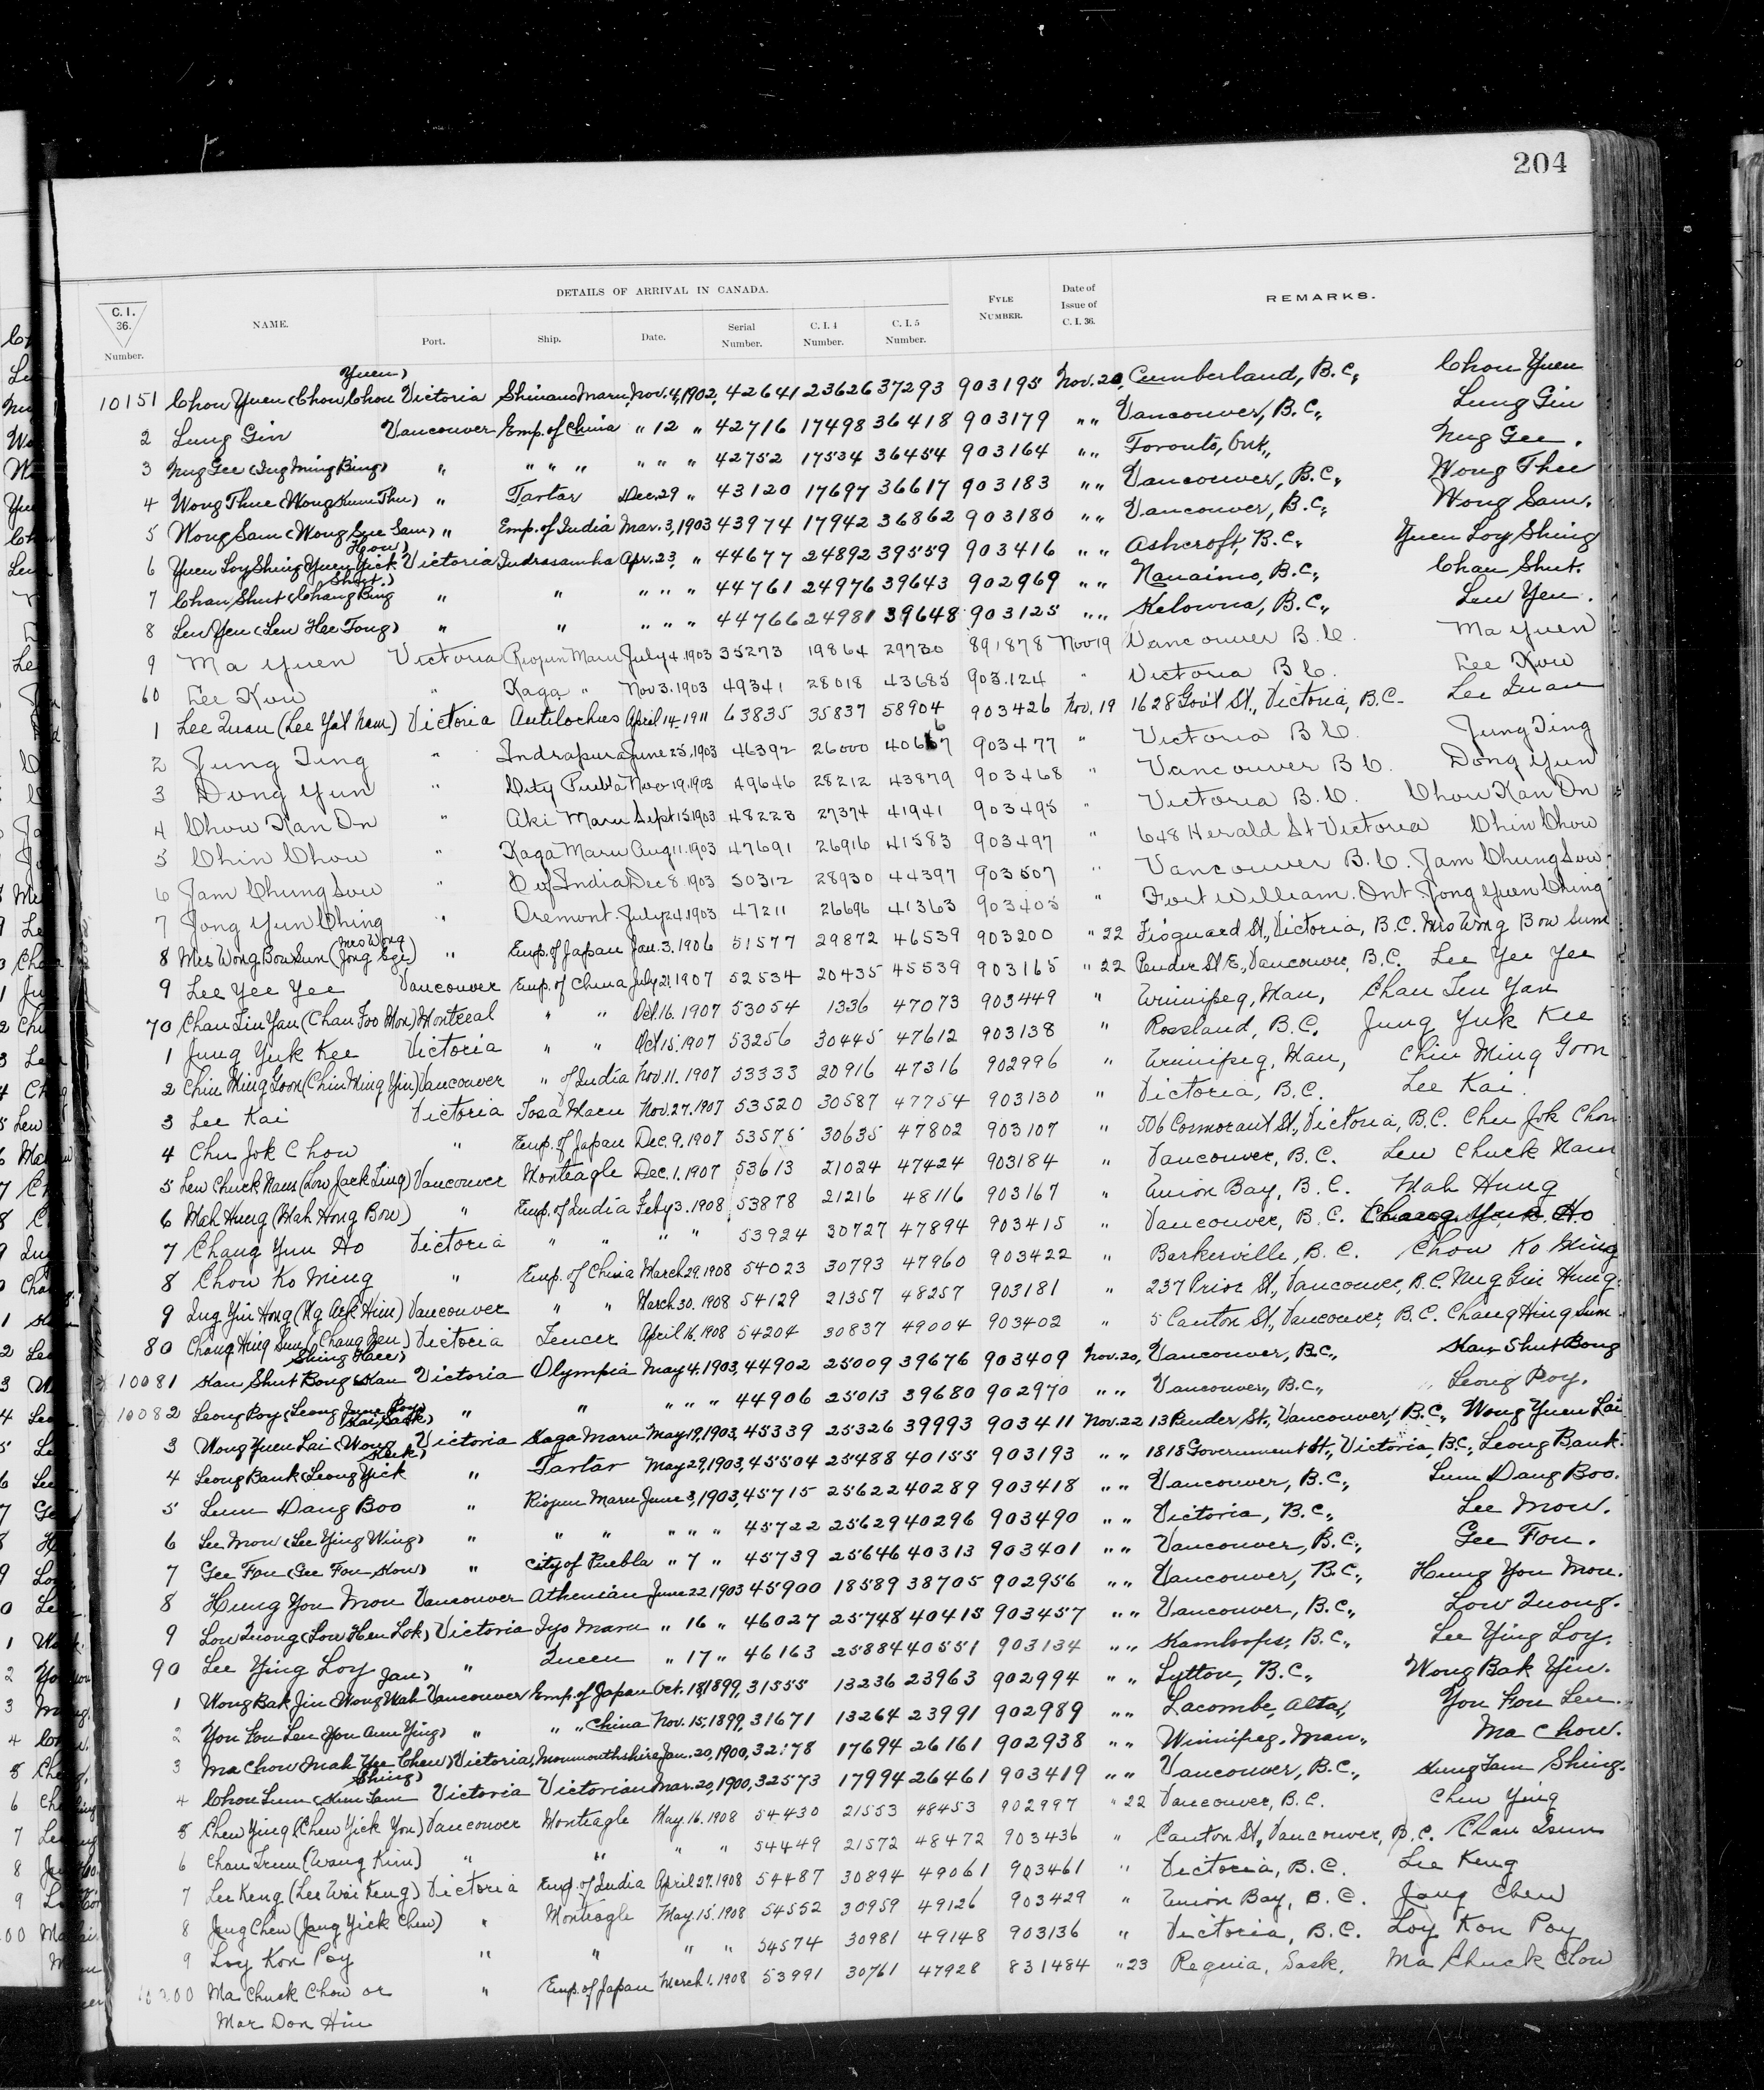 204
DETAILS OF ARRIVAL IN CANADA.
C. I. 36. Number. NAME. Port. Ship. Date. Serial Number. C. I. 4 Number. C. I. 5 Number. FYLE NUMBER. Date of Issue of C. I. 36. REMARKS.
10151 Chou Yuen (Chou Chou Yuen) Victoria Shinano Maru, Nov. 4, 1902, 42641 23626 37293 903195 Nov. 20, Cumberland, B.C., Chou Yuen
2 Lung Gin Vancouver Emp. of China " 12 " 42716 17498 36418 903179 " " Vancouver, B.C., Lung Gin
3 Nug Gee (Ing Ming Bing) " " " " " " " 42752 17534 36454 903164 " " Toronto, Ont., Nug Gee.
4 Wong Thue (Wong Kum Thu) " Tartar Dec. 29 " 43120 17697 36617 903183 " " Vancouver, B.C., Wong Thue
5 Wong Sam (Wong Sue Sam) " Emp. of India Mar. 3, 1903 43974 17942 36862 903180 " " Vancouver, B.C., Wong Sam.
6 Yuen Loy Shing (Yuen Yick How) Victoria Indrasamha Apr. 23, " 44677 24892 39559 903416 " " Ashcroft, B.C., Yuen Loy Shing
7 Chan Shut (Chang Bing Shut.) " " " " " 44761 24976 39643 902969 " " Nanaimo, B.C., Chan Shut.
8 Len Yen (Len Hee Tong) " " " " " 44766 24981 39648 903125 " " Kelowna, B.C., Len Yen.
9 Ma Yuen Victoria Riojun Maru July 4. 1903 35273 19864 29730 891878 Nov 19 Vancouver B.C. Ma Yuen
60 Lee Kow " Kaga " Nov 3. 1903 49341 28018 43685 903.124 " Victoria B.C. Lee Kow
1 Lee Quan (Lee Yat Nam) Victoria Antilochus April 14-1911 63835 35837 58904 903426 Nov. 19 1628 Gov't St., Victoria, B.C. Lee Quan
2 Jung Ting " Indrapura June 25, 1903 46392 26000 40667 903477 " Victoria B.C. Jung Ting
3 Dong Yun " City Puebla Nov 19. 1903 49646 28212 43879 903468 " Vancouver B.C. Dong Yun
4 Chow Kan On " Aki Maru Sept 15. 1903 48223 27374 41941 903495 " Victoria B.C. Chow Kan On
5 Chin Chow " Kaga Maru Aug 11. 1903 47691 26916 41583 903497 " 648 Herald St Victoria Chin Chow
6 Jam Chung Sow " E of India Dec 8 1903 50312 28930 44397 903507 " Vancouver B.C. Jam Chung Sow
7 Jong Yun Ching " Oremont. July 24. 1903 47211 26696 41363 903405 " Fort William. Ont. Jong Yuen Ching
8 Mrs Wong Bow Sun (Mrs Wong Jong Sge) " Emp. of Japan Jan. 3. 1906 51577 29872 46539 903200 " 22 Fisguard St., Victoria, B.C. Mrs Wong Bow Sum
9 Lee Yee Yee Vancouver Emp. of China July 21, 1907 52534 20435 45539 903165 " 22 Pender St E., Vancouver, B.C. Lee Yee Yee
70 Chan Tin Yan (Chan Foo Mon) Montreal " " Oct. 16. 1907 53054 1336 47073 903449 " Winnipeg, Man, Chan Ten Yan
1 Jung Yuk Kee Victoria " " Oct 15. 1907 53256 30445 47612 903138 " Rossland, B.C. Jung Yuk Kee
2 Chin Ming Goon (Chin Ming Yin) Vancouver " of India Nov. 11. 1907 53333 20916 47316 902996 " Winnipeg, Man, Chin Ming Goon
3 Lee Kai Victoria Tosa Maru Nov. 27. 1907 53520 30587 47754 903130 " Victoria, B.C. Lee Kai.
4 Chu Jok Chow " Emp. of Japan Dec. 9. 1907 53575 30635 47802 903107 " 506 Cormorant St., Victoria, B.C. Chu Jok Chow
5 Lew Chuck Nam (Low Jack Ling) Vancouver Monteagle Dec. 1. 1907 53613 21024 47424 903184 " Vancouver, B.C. Lew Chuck Nam
6 Mah Hung (Mah Hong Bow) " Emp. of India Feby 3. 1908 53878 21216 48116 903167 " Union Bay, B.C. Mah Hung
7 Chang Yun Ho Victoria " " " " 53924 30727 47894 903415 " Vancouver, B.C. Chang Yun Ho
8 Chow Ko Ming " Emp. of China March 29. 1908 54023 30793 47960 903422 " Barkerville, B.C. Chow Ko Ming
9 Ing Yin Hong (Ng Ack Him) Vancouver " " March 30. 1908 54129 21357 48257 903181 " 237 Prior St., Vancouver, B.C. Nug Gin Hung
80 Chang Hing Sun (Chang Jen) Victoria Teucer April 16, 1908 54204 30837 49004 903402 " 5 Canton St., Vancouver, B.C. Chang Hing Sum
10081 Kan Shut Bong (Kan Shing Hare) Victoria Olympia May 4, 1903, 44902 25009 39676 903409 Nov. 20, Vancouver, B.C., Kan Shut Bong
10082 Leong Poy (Leong June Poy) " " " " " 44906 25013 39680 902970 " " Vancouver, B.C., Leong Poy.
3 Wong Yuen Lai (Wong Kai Sack) Victoria Kaga Maru May 19, 1903, 45339 25326 39993 903411 Nov. 22 13 Pender St., Vancouver, B.C., Wong Yuen Lai
4 Leong Bank (Leong Yick Keek) " Tartar May 29, 1903, 45504 25488 40155 903193 " " 1818 Government St., Victoria, B.C., Leong Bank.
5 Lum Dang Boo " Riojun Maru June 3, 1903, 45715 25622 40289 903418 " " Vancouver, B.C., Lum Dang Boo.
6 Lee Mow (Lee Ying Wing) " " " " " " 45722 25629 40296 903490 " " Victoria, B.C., Lee Mow.
7 Gee Fon (Gee Fon Kow) " City of Puebla " 7 " 45739 25646 40313 903401 " " Vancouver, B.C., Gee Fon.
8 Hung You Mou Vancouver Athenian June 22 1903 45900 18589 38705 902956 " " Vancouver, B.C., Hung You Mou.
9 Low Quong (Low Hen Lok) Victoria Iyo Maru " 16 " 46027 25748 40415 903457 " " Vancouver, B.C., Low Quong.
90 Lee Ying Loy " Queen " 17 " 46163 25884 40551 903134 " " Kamloops, B.C., Lee Ying Loy.
1 Wong Bak Jin (Wong Wah Jan) Vancouver Emp. of Japan Oct. 18, 1899, 31555 13236 23963 902994 " " Lytton, B.C., Wong Bak Yin.
2 You Fou Len (You Ann Ying) " " " China Nov. 15, 1899, 31671 13264 23991 902989 " " Lacombe, Alta, You Fou Len.
3 Ma Chow (Mah Yee Chew) Victoria, Monmouthshire Jan. 20, 1900, 32178 17694 26161 902938 " " Winnipeg. Man., Ma Chow.
4 Chou Lum (Kum Lam Shing) Victoria Victorian Mar. 20, 1900, 32573 17994 26461 903419 " " Vancouver, B.C., Kung Lam Shing.
5 Chew Ying (Chew Yick You) Vancouver Monteagle May. 16. 1908 54430 21553 48453 902997 " 22 Vancouver, B.C. Chew Ying
6 Chan Irun (Wang Kim) " " " " 54449 21572 48472 903436 " Canton St, Vancouver, B.C. Chan Isun
7 Lee Keng (Lee Wai Keng) Victoria Emp. of India April 27. 1908 54487 30894 49061 903461 " Victoria, B.C. Lee Keng
8 Jang Chew (Jang Yick Chew) " Monteagle May. 15. 1908 54552 30959 49126 903429 " Union Bay, B.C. Jang Chew
9 Loy Kon Poy " " " " 54574 30981 49148 903136 " Victoria, B.C. Loy Kon Poy
10200 Ma Chuck Chow or " Emp. of Japan March 1. 1908 53991 30761 47928 831484 " 23 Regina, Sask, Ma Chuck Chow
Mar Don Hin